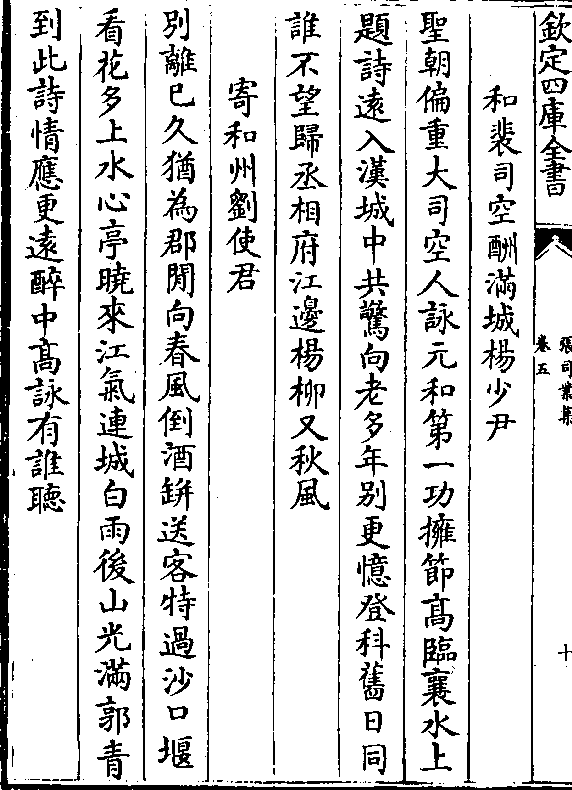 欽定四庫全書
張司業集
卷五
十
和裴司空酬滿城楊少尹
聖朝偏重大司空人詠元和第一功擁節髙臨襄水上
題詩遠入漢城中共驚向老多年别更憶登科舊日同
誰不望歸丞相府江邊楊柳又秋風
寄和州劉使君
别離已久猶為郡閒向春風倒酒缾送客特過沙口堰
看花多上水心亭曉來江氣連城白雨後山光滿郭青
到此詩情應更遠醉中髙詠有誰聽